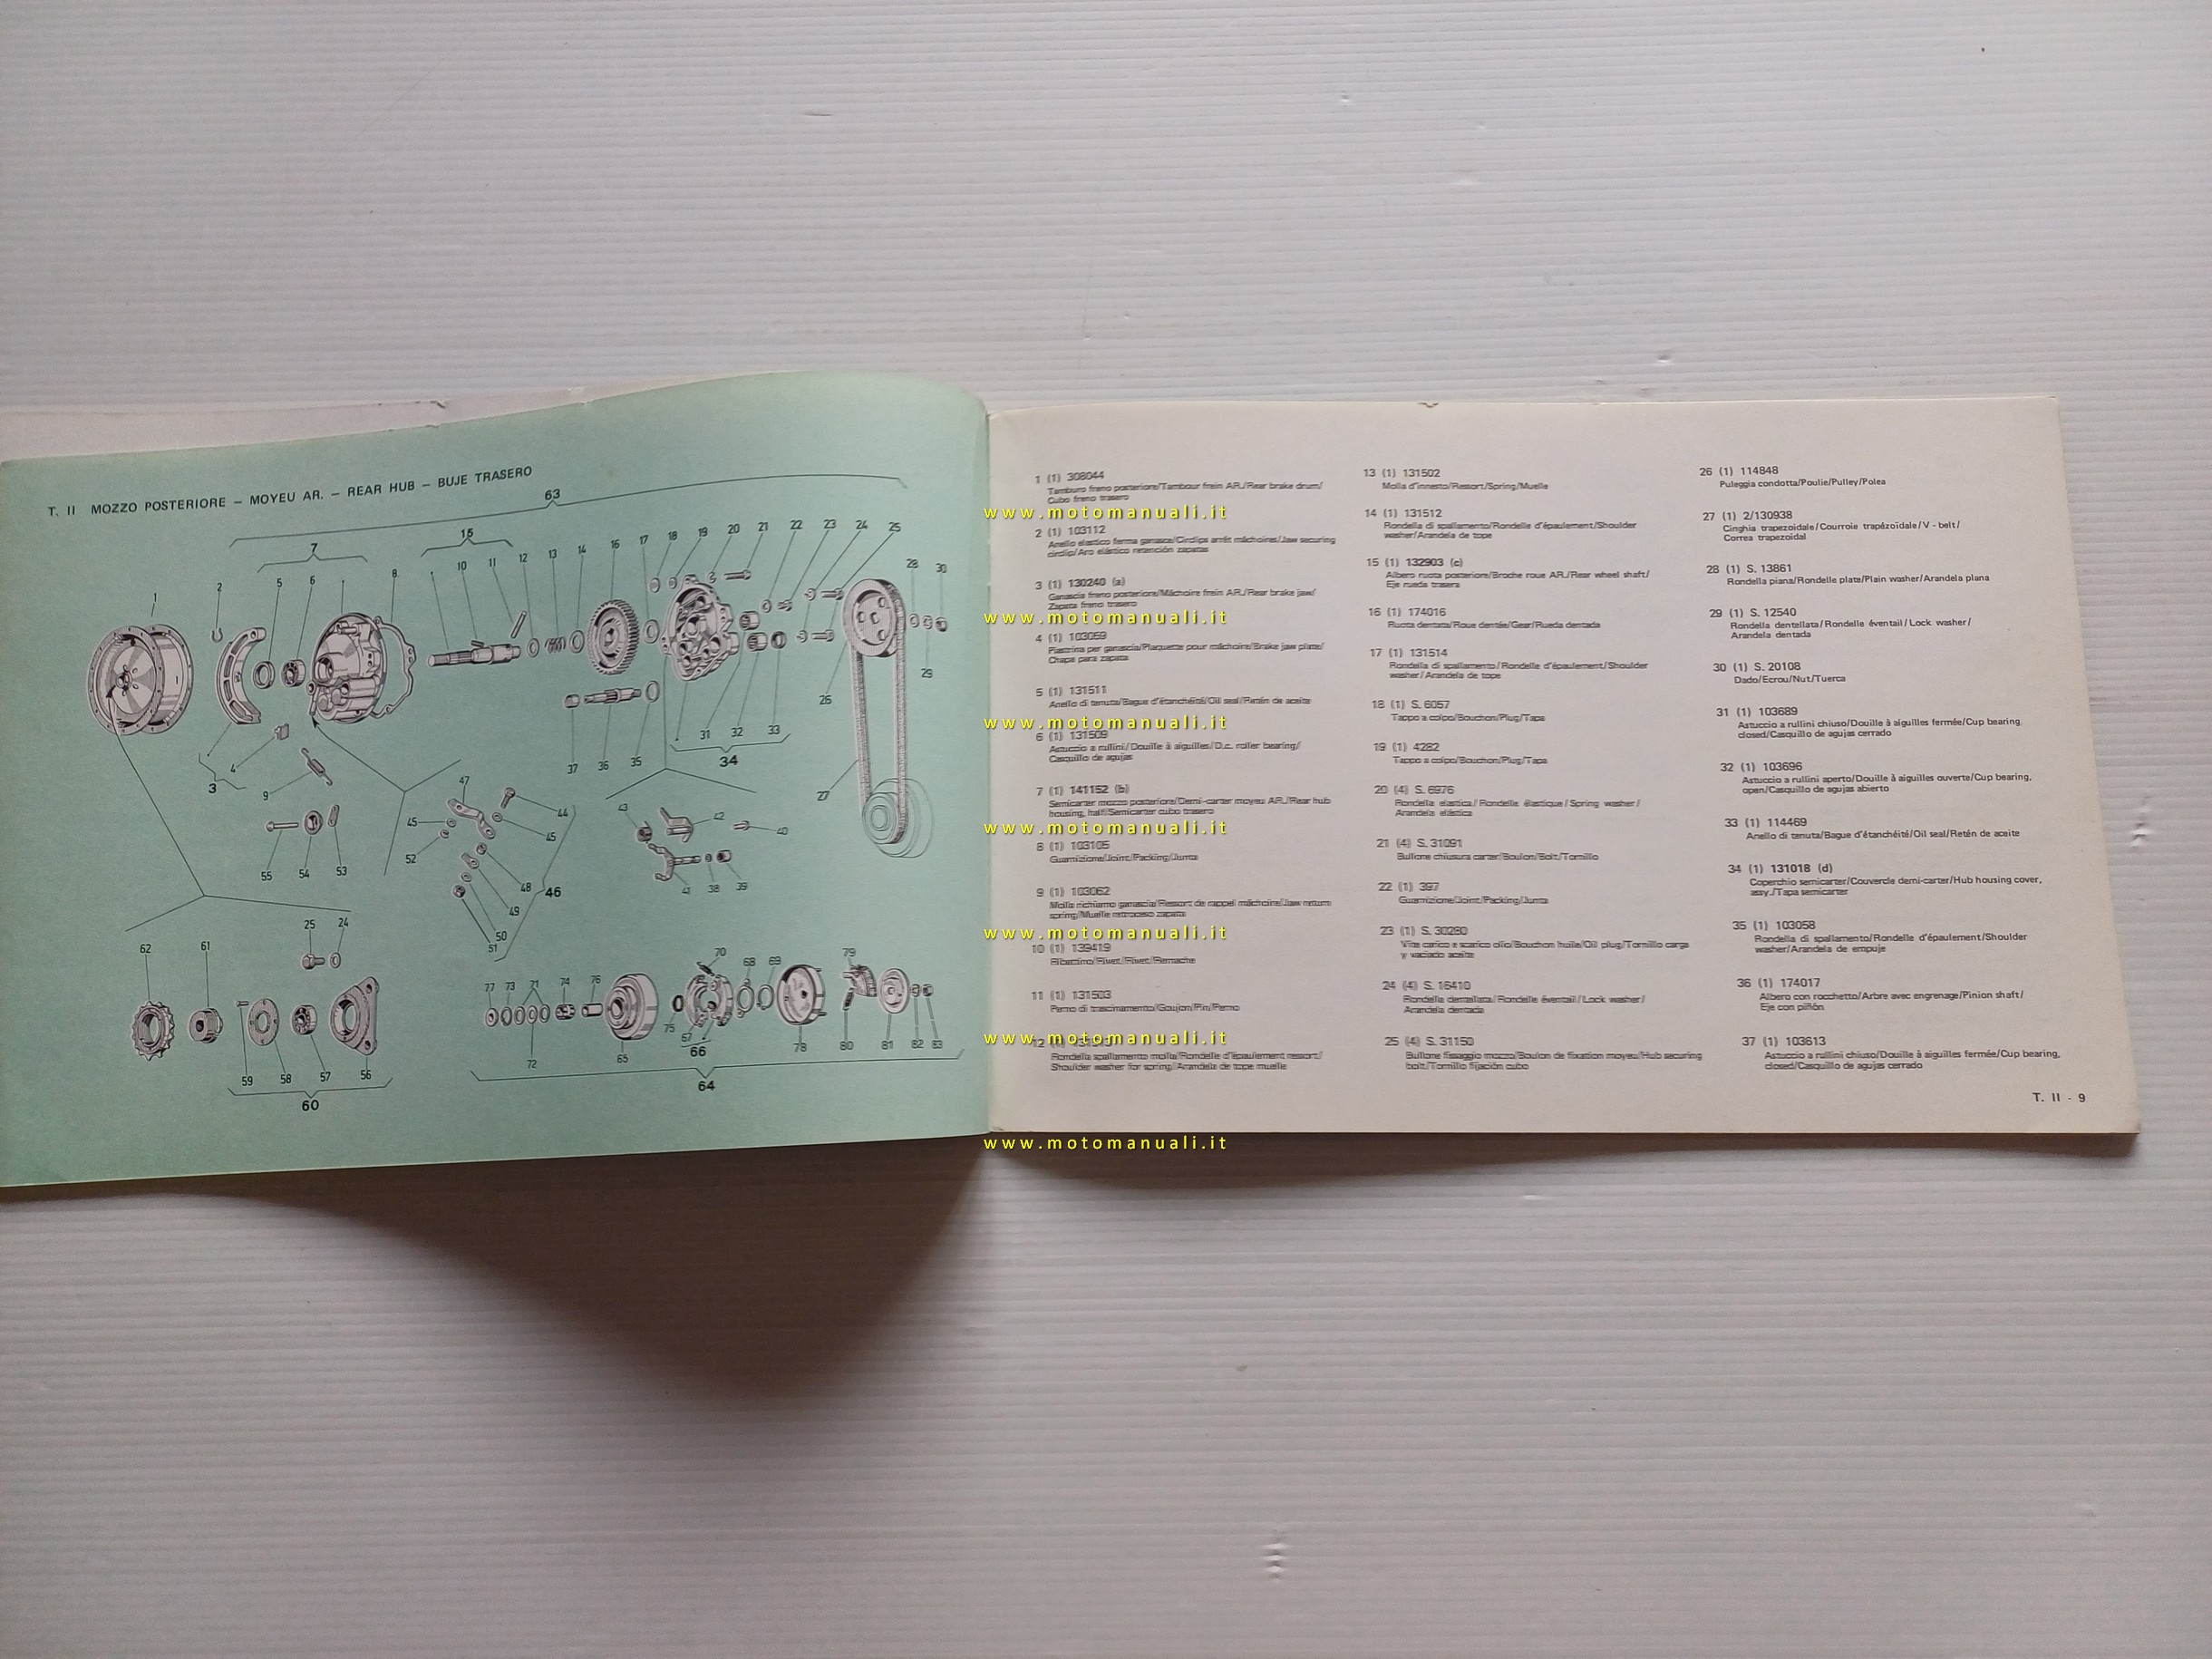 T. II MOZZO POSTERIORE – MOYEU AR. – REAR HUB – BUJE TRASERO
63
15
7
1
2
5
6
8
10
11
12
13
14
16
17
18
19
20
21
22
23
24
25
28
30
29
26
27
31
32
33
34
35
36
37
3
4
9
47
44
45
45
52
48
46
49
50
51
55
54
53
43
42
40
41
38
39
62
61
25
24
59
58
57
56
60
77
73
71
74
76
70
68
69
79
72
65
75
67
66
78
80
81
82
83
64
1 (1) 308044
Tamburo freno posteriore/Tambour frein AR./Rear brake drum/
Cubo freno trasero
2 (1) 103112
Anello elastico ferma ganasce/Circlips arrêt mâchoires/Jaw securing
circlip/Aro elástico retención zapatas
3 (1) 130240 (a)
Ganascia freno posteriore/Mâchoire frein AR./Rear brake jaw/
Zapata freno trasero
4 (1) 103059
Piastrina per ganascia/Plaquette pour mâchoire/Brake jaw plate/
Chapa para zapata
5 (1) 131511
Anello di tenuta/Bague d'étanchéité/Oil seal/Retén de aceite
6 (1) 131509
Astuccio a rullini/Douille à aiguilles/D.c. roller bearing/
Casquillo de agujas
7 (1) 141152 (b)
Semicarter mozzo posteriore/Demi-carter moyeu AR./Rear hub
housing, half/Semicarter cubo trasero
8 (1) 103105
Guarnizione/Joint/Packing/Junta
9 (1) 103062
Molla richiamo ganascia/Ressort de rappel mâchoire/Jaw return
spring/Muelle retroceso zapata
10 (1) 139419
Ribattino/Rivet/Rivet/Remache
11 (1) 131503
Perno di trascinamento/Goujon/Pin/Perno
12 (1)
Rondella spallamento molla/Rondelle d'épaulement ressort/
Shoulder washer for spring/Arandela de tope muelle
13 (1) 131502
Molla d'innesto/Ressort/Spring/Muelle
14 (1) 131512
Rondella di spallamento/Rondelle d'épaulement/Shoulder
washer/Arandela de tope
15 (1) 132903 (c)
Albero ruota posteriore/Broche roue AR./Rear wheel shaft/
Eje rueda trasera
16 (1) 174016
Ruota dentata/Roue dentée/Gear/Rueda dentada
17 (1) 131514
Rondella di spallamento/Rondelle d'épaulement/Shoulder
washer/Arandela de tope
18 (1) S. 6057
Tappo a colpo/Bouchon/Plug/Tapa
19 (1) 4282
Tappo a colpo/Bouchon/Plug/Tapa
20 (4) S. 6976
Rondella elastica/Rondelle élastique/Spring washer/
Arandela elástica
21 (4) S. 31091
Bullone chiusura carter/Boulon/Bolt/Tornillo
22 (1) 397
Guarnizione/Joint/Packing/Junta
23 (1) S. 30280
Vite carico e scarico olio/Bouchon huile/Oil plug/Tornillo carga
y vaciado aceite
24 (4) S. 16410
Rondella dentellata/Rondelle éventail/Lock washer/
Arandela dentada
25 (4) S. 31150
Bullone fissaggio mozzo/Boulon de fixation moyeu/Hub securing
bolt/Tornillo fijación cubo
26 (1) 114848
Puleggia condotta/Poulie/Pulley/Polea
27 (1) 2/130938
Cinghia trapezoidale/Courroie trapézoïdale/V - belt/
Correa trapezoidal
28 (1) S. 13861
Rondella piana/Rondelle plate/Plain washer/Arandela plana
29 (1) S. 12540
Rondella dentellata/Rondelle éventail/Lock washer/
Arandela dentada
30 (1) S. 20108
Dado/Ecrou/Nut/Tuerca
31 (1) 103689
Astuccio a rullini chiuso/Douille à aiguilles fermée/Cup bearing,
closed/Casquillo de agujas cerrado
32 (1) 103696
Astuccio a rullini aperto/Douille à aiguilles ouverte/Cup bearing,
open/Casquillo de agujas abierto
33 (1) 114469
Anello di tenuta/Bague d'étanchéité/Oil seal/Retén de aceite
34 (1) 131018 (d)
Coperchio semicarter/Couvercle demi-carter/Hub housing cover,
assy./Tapa semicarter
35 (1) 103058
Rondella di spallamento/Rondelle d'épaulement/Shoulder
washer/Arandela de empuje
36 (1) 174017
Albero con rocchetto/Arbre avec engrenage/Pinion shaft/
Eje con piñón
37 (1) 103613
Astuccio a rullini chiuso/Douille à aiguilles fermée/Cup bearing,
closed/Casquillo de agujas cerrado
T. II - 9
www.motomanuali.it
www.motomanuali.it
www.motomanuali.it
www.motomanuali.it
www.motomanuali.it
www.motomanuali.it
www.motomanuali.it